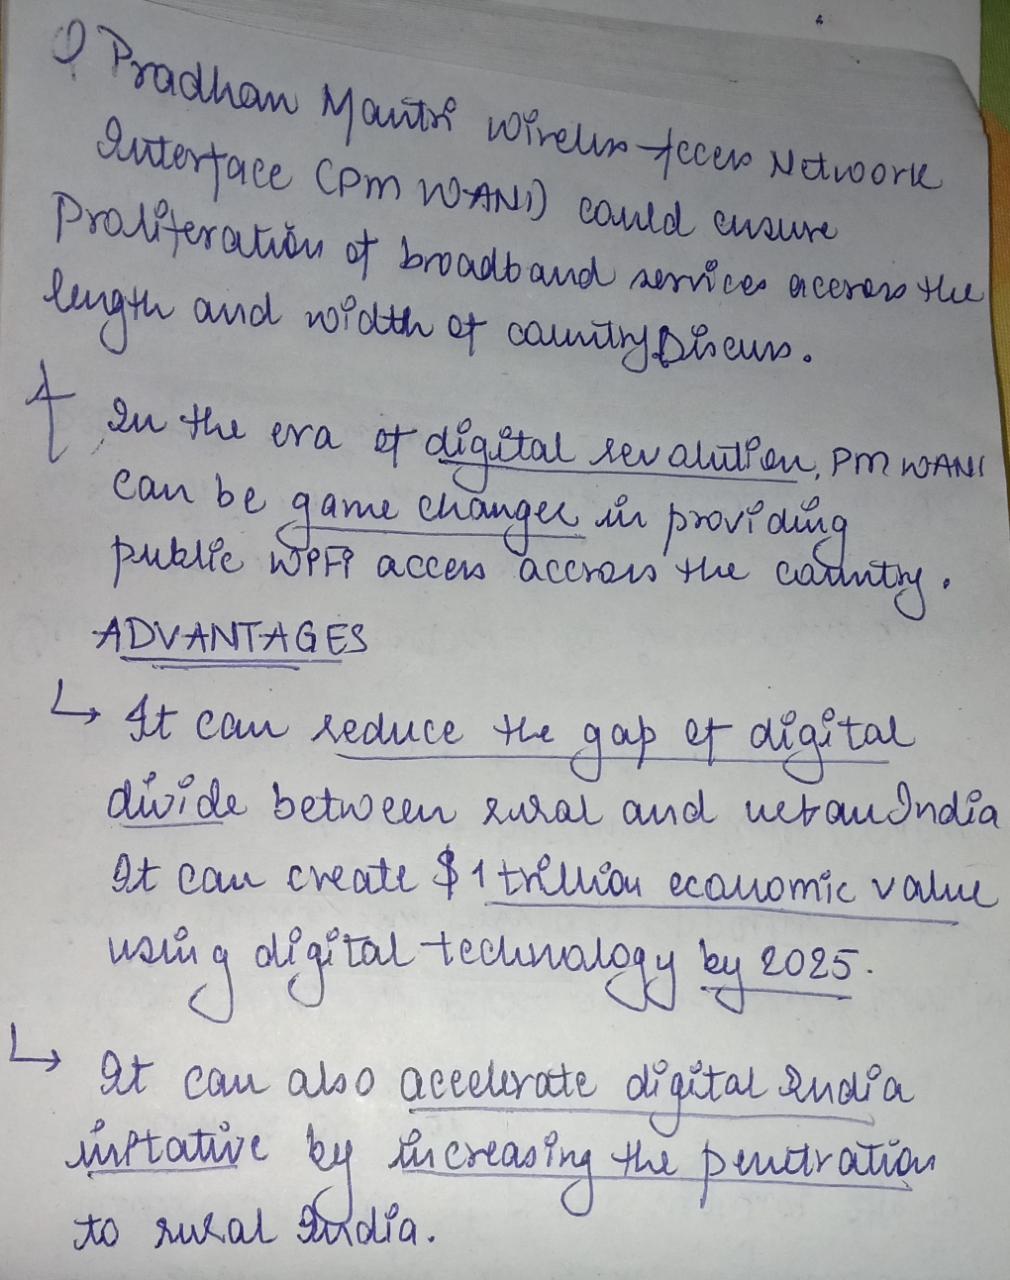 Q Pradhan Mantri Wireless Access Network
Interface (PM WANI) could ensure
Proliferation of broadband services accross the
length and width of country, Discuss.
A In the era of digital revolution, PM WANI
can be game changer in providing
public WiFi access accross the country.
ADVANTAGES
↳ It can reduce the gap of digital
divide between rural and urban India
It can create $1 trillion economic value
using digital technology by 2025.
↳ It can also accelerate digital India
initative by increasing the penetration
to rural India.